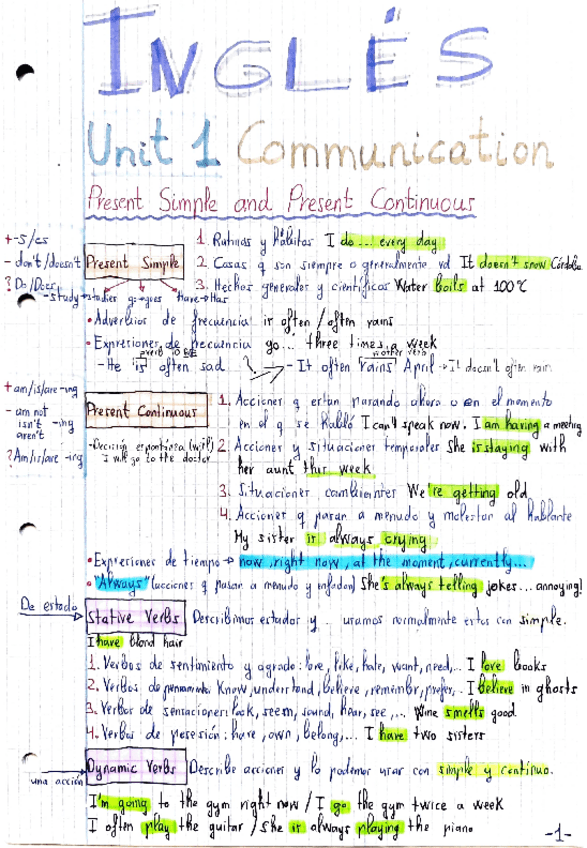 INGLÉS
Unit 1 Communication
Present Simple and Present Continuous
+ -s/es
- don't/doesn't
? Do/Does
Present Simple
1. Rutinas y hábitos I do... every day
2. Cosas q son siempre o generalmente vd It doesn't snow Córdoba
3. Hechos generales y científicos Water boils at 100ºC
-study→studies go→goes have→has
• Adverbios de frecuencia is often / often rains
• Expresiones de frecuencia go... three times a week
verb to BE
another verb
- He is often sad
- It often rains April → It doesn't often rain
+ am/is/are -ing
- am not
isn't -ing
aren't
? Am/is/are -ing
Present Continuous
-Decisión espontánea (will)
I will go to the doctor
1. Acciones q están pasando ahora o en el momento
en el q se habla I can't speak now. I am having a meeting
2. Acciones y situaciones temporales She is staying with
her aunt this week
3. Situaciones cambiantes We're getting old
4. Acciones q pasan a menudo y molestan al hablante
My sister is always crying
• Expresiones de tiempo → now, right now, at the moment, currently...
• "Always" (acciones q pasan a menudo y enfadan) She's always telling jokes... annoying!
De estado
Stative Verbs Describimos estados y... usamos normalmente estos con simple.
I have blond hair
1. Verbos de sentimiento y agrado: love, like, hate, want, need,... I love books
2. Verbos de pensamiento: Know, understand, believe, remember, prefer,.. I believe in ghosts
3. Verbos de sensaciones: look, seem, sound, hear, see,... Wine smells good
4. Verbos de posesión: have, own, belong,... I have two sisters
una acción
Dynamic Verbs Describe acciones y lo podemos usar con simple y continuo.
I'm going to the gym right now / I go the gym twice a week
I often play the guitar / She is always playing the piano
-1-